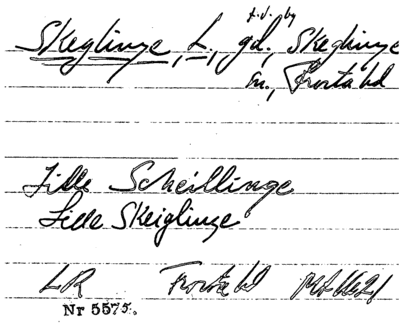 f.d. by
Skeglinge, L., gd., Skeglinge
sn., Frosta hd
Lille Scheillinge
Lille Skeiglinge
LR Frosta hd Ml 1621
Nr 5575.